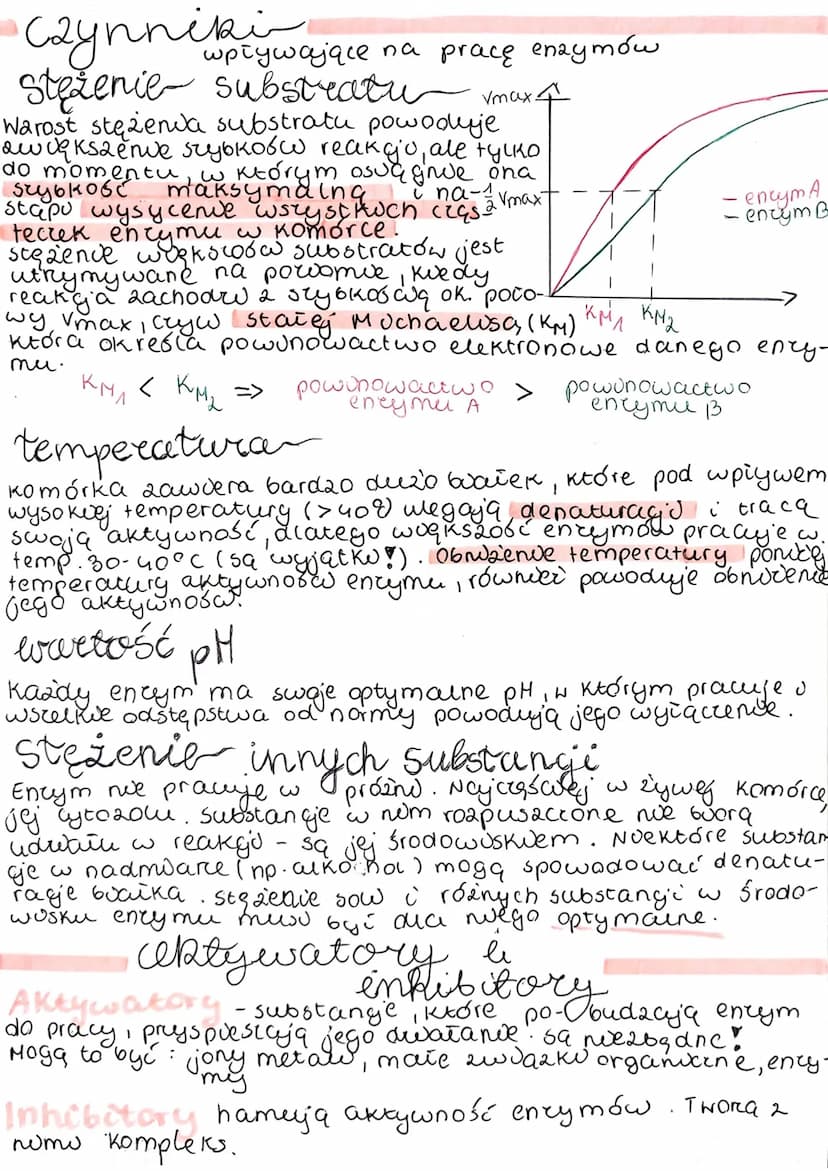 Czynniki
wpływające na pracę enzymów
stężenie substratu
Vmax
Wzrost stężenia substratu powoduje
zwiększenie szybkości reakcji, ale tylko
do momentu, w którym osiągnie ona
szybkość maksymalną i na-
stąpi wysycenie wszystkich cząs-
teczek enzymu w komórce.
stężenie większości substratów jest
utrzymywane na poziomie, kiedy
reakcja zachodzi z szybkością ok. poło-
wy Vmax, czyli stałej Michaelisa, (KM)
która określa powinowactwo elektronowe danego enzy-
mu.
1/2 Vmax
- enzym A
- enzym B
KM1 KM2
KM1 < KM2 => powinowactwo enzymu A > powinowactwo enzymu B
temperatura
komórka zawiera bardzo dużo białek, które pod wpływem
wysokiej temperatury (>40°) ulegają denaturacji i tracą
swoją aktywność, dlatego większość enzymów pracuje w
temp. 30-40°C (są wyjątki!). Obniżenie temperatury poniżej
temperatury aktywności enzymu, również powoduje obniżenie
jego aktywności.
wartość pH
Każdy enzym ma swoje optymalne pH, w którym pracuje i
wszelkie odstępstwa od normy powodują jego wyłączenie.
stężenie innych substancji
Enzym nie pracuje w próżni. Najczęściej w żywej komórce,
jej cytozolu. substancje w nim rozpuszczone nie biorą
udziału w reakcji - są jej środowiskiem. Niektóre substan
cje w nadmiarze (np. alkohol) mogą spowodować denatu-
rację białka. stężenie soli i różnych substancji w środo-
wisku enzymu musi być dla niego optymalne.
aktywatory i
inhibitory
Aktywatory - substancje, które po-budzają enzym
do pracy, przyspieszają jego działanie. są niezbędne!
Mogą to być: jony metali, małe związki organiczne, enzy-
my
Inhibitory hamują aktywność enzymów. Tworzą z
nimi kompleks.